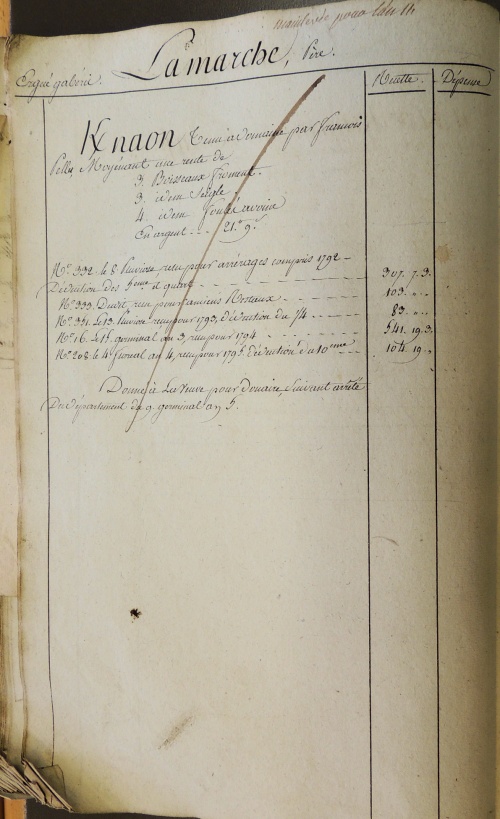 mainlevée pour l'an 14
Lamarche, Père.
Ergué gabéric. Recette Dépense
Knaon Tenu à Domaine par François
Pellé, Moyénant une rente de
3. Boisseaux froment.
3. idem Seigle.
4. idem foulé avoine
En argent - - - 21.# 9.s
N.o 332. le 8 Pluviose reçu pour arrérages compris 1792 - 307. 7. 3.
Déduction des 5eme et quart - - -
N.o 333. Dudit reçu pour anciens Resteaux. - - - 103. " . "
N.o 351. Le 13. Pluviose reçu pour 1793, déduction du 1/4 - - - 83. " . "
N.o 16. Le 15 germinal an 3, reçu pour 1794 - - - 541. 19. 3.
N.o 208. le 4 floreal an 4, reçu pour 1795. Déduction du 10eme - - 104. 19 . "
Donné à La Veuve pour douaire, Suivant arrêté
Du département du 9. germinal an 5.